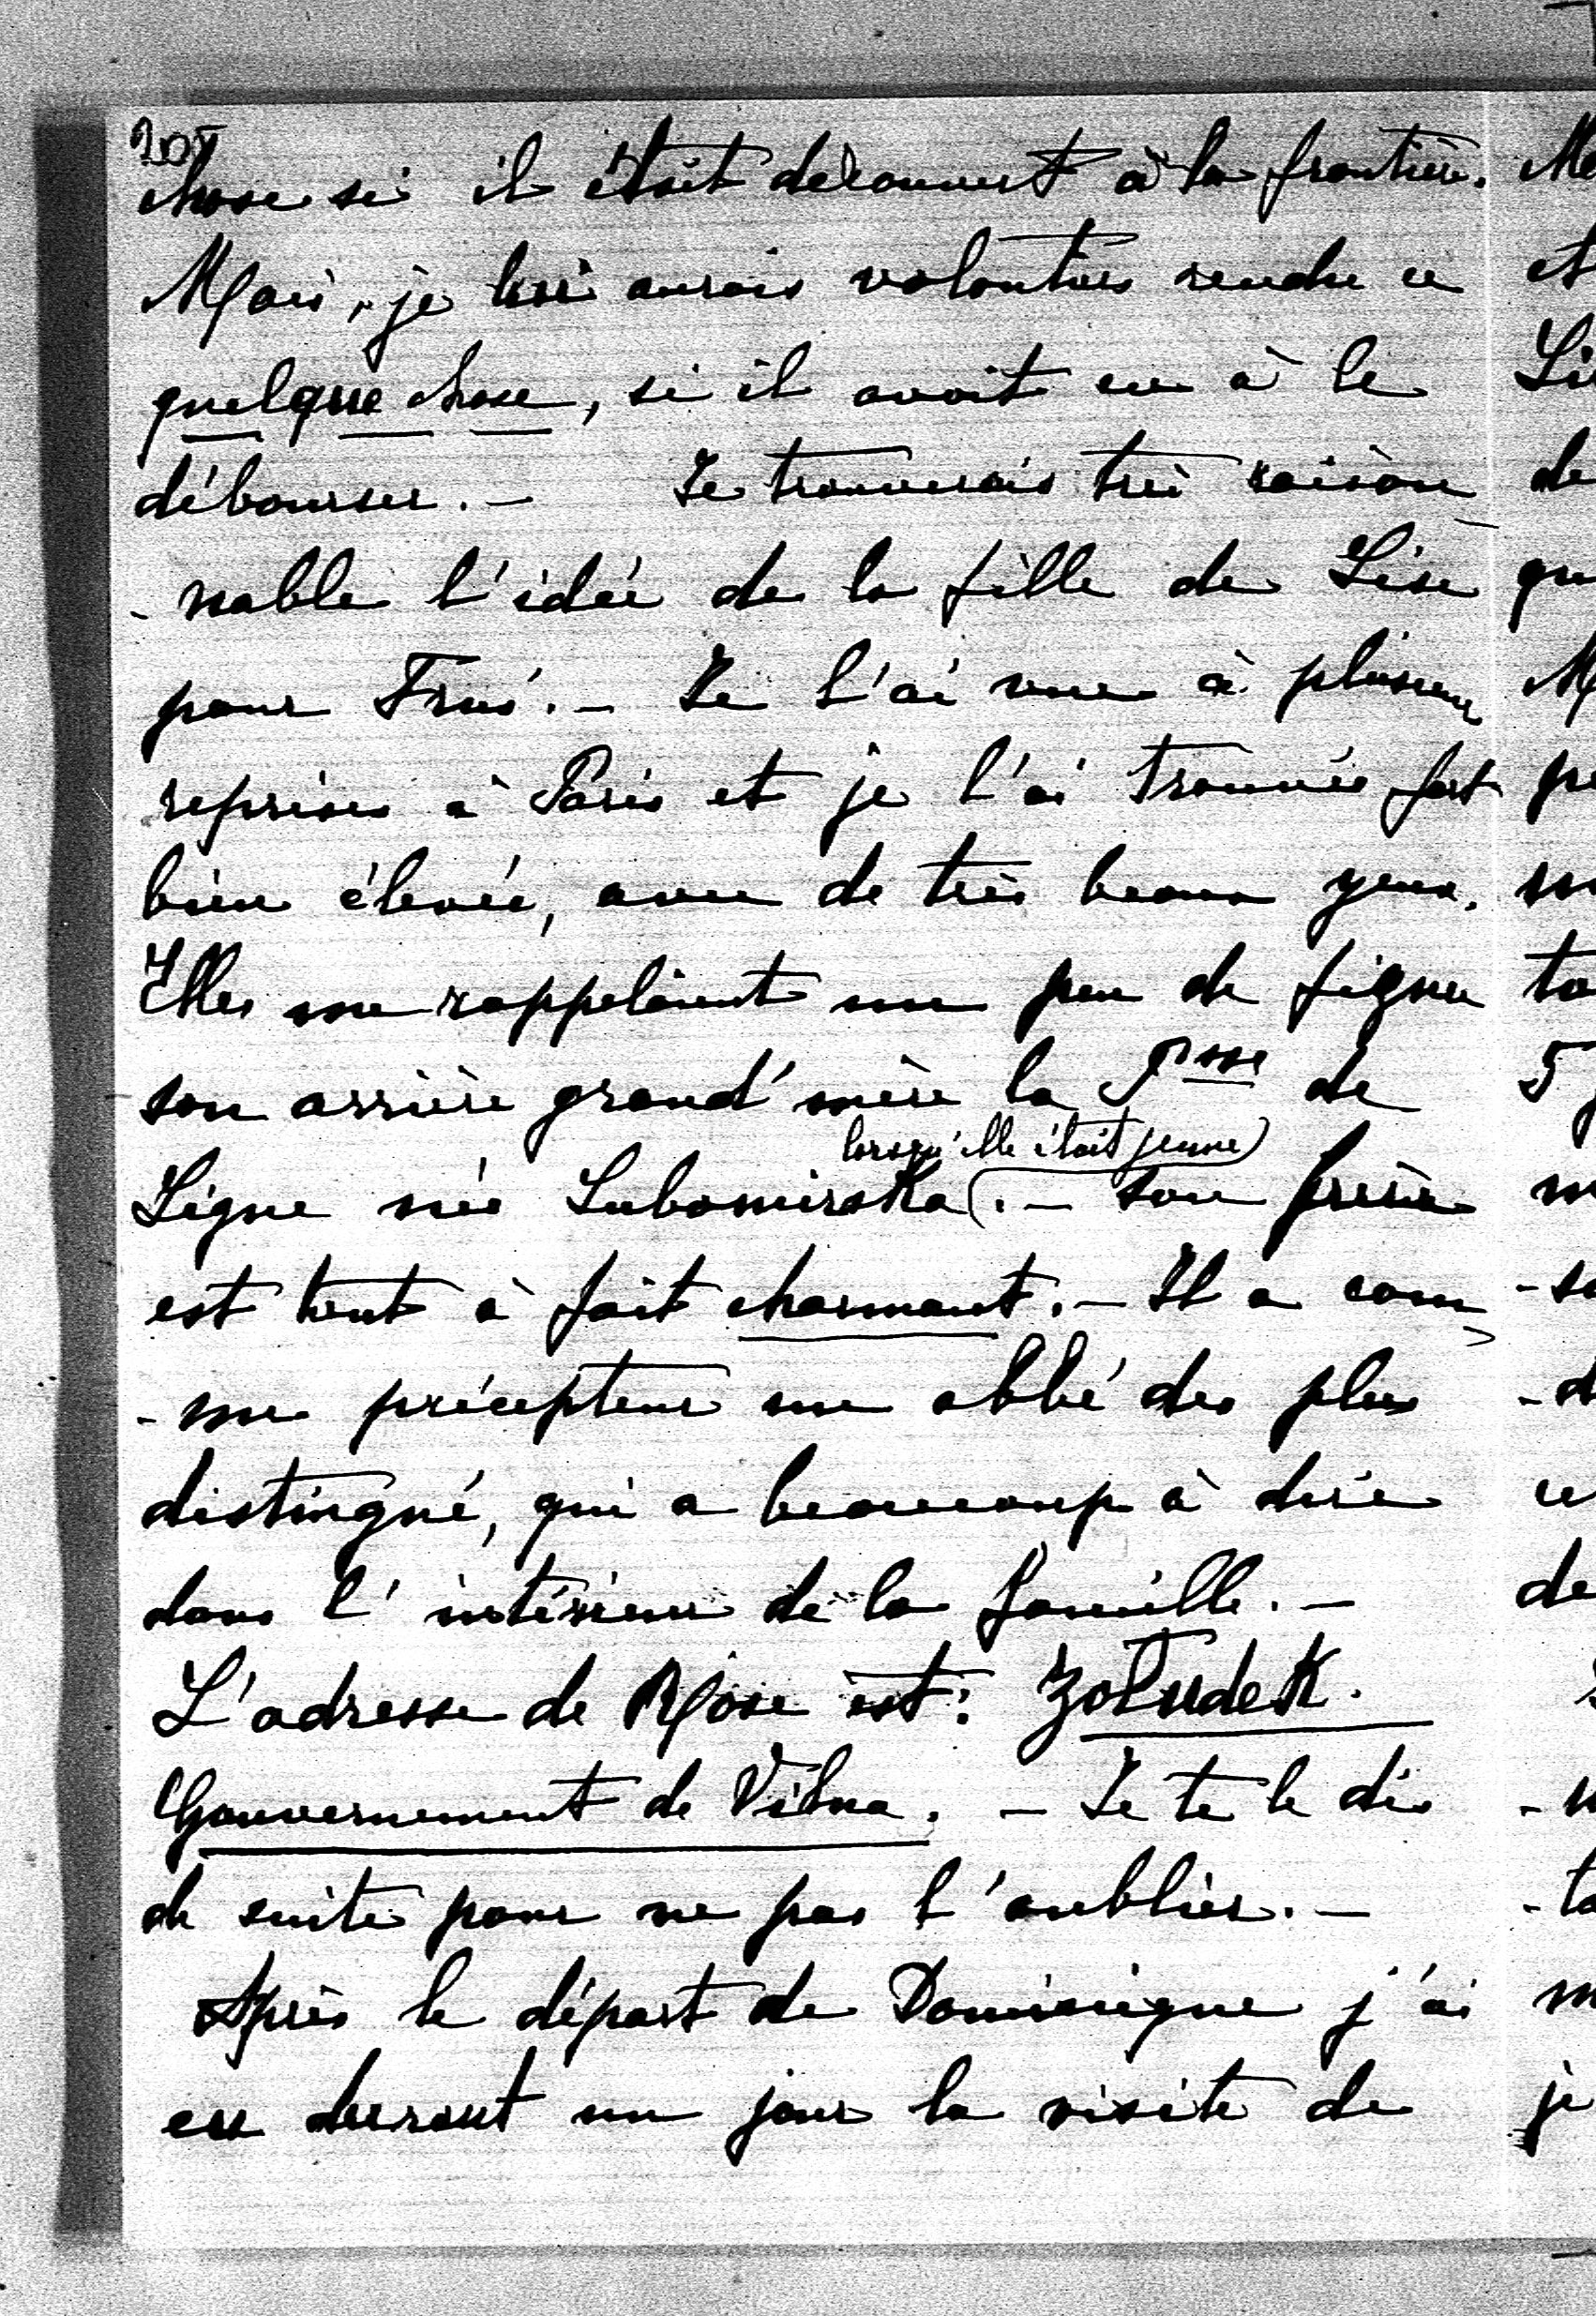 205
chose si il était découvert à la frontière.
Mais, je lui aurais volontiers rendu ce
quelque chose, si il avait eu à le
débourser. – Je trouverais très raison
- nable l'idée de la fille de Lise
pour Frus. – Je l'ai vue à plusieurs
reprises à Paris et je l'ai trouvée fort
bien élevée, avec de très beaux yeux.
Elles me rappelaient un peu de figure
son arrière grand'mère la Psse de
lorsqu'elle était jeune)
Ligne née Lubomirska (. – Son frère
est tout à fait charmant. – Il a com
- me précepteur un abbé des plus
distingué, qui a beaucoup à dire
dans l'intérieur de la famille. –
L'adresse de Rose est: Żołudek.
Gouvernement de Vilna. – Je te le dis
de suite pour ne pas l'oublier. –
Après le départ de Dominique j'ai
eu durant un jour la visite de